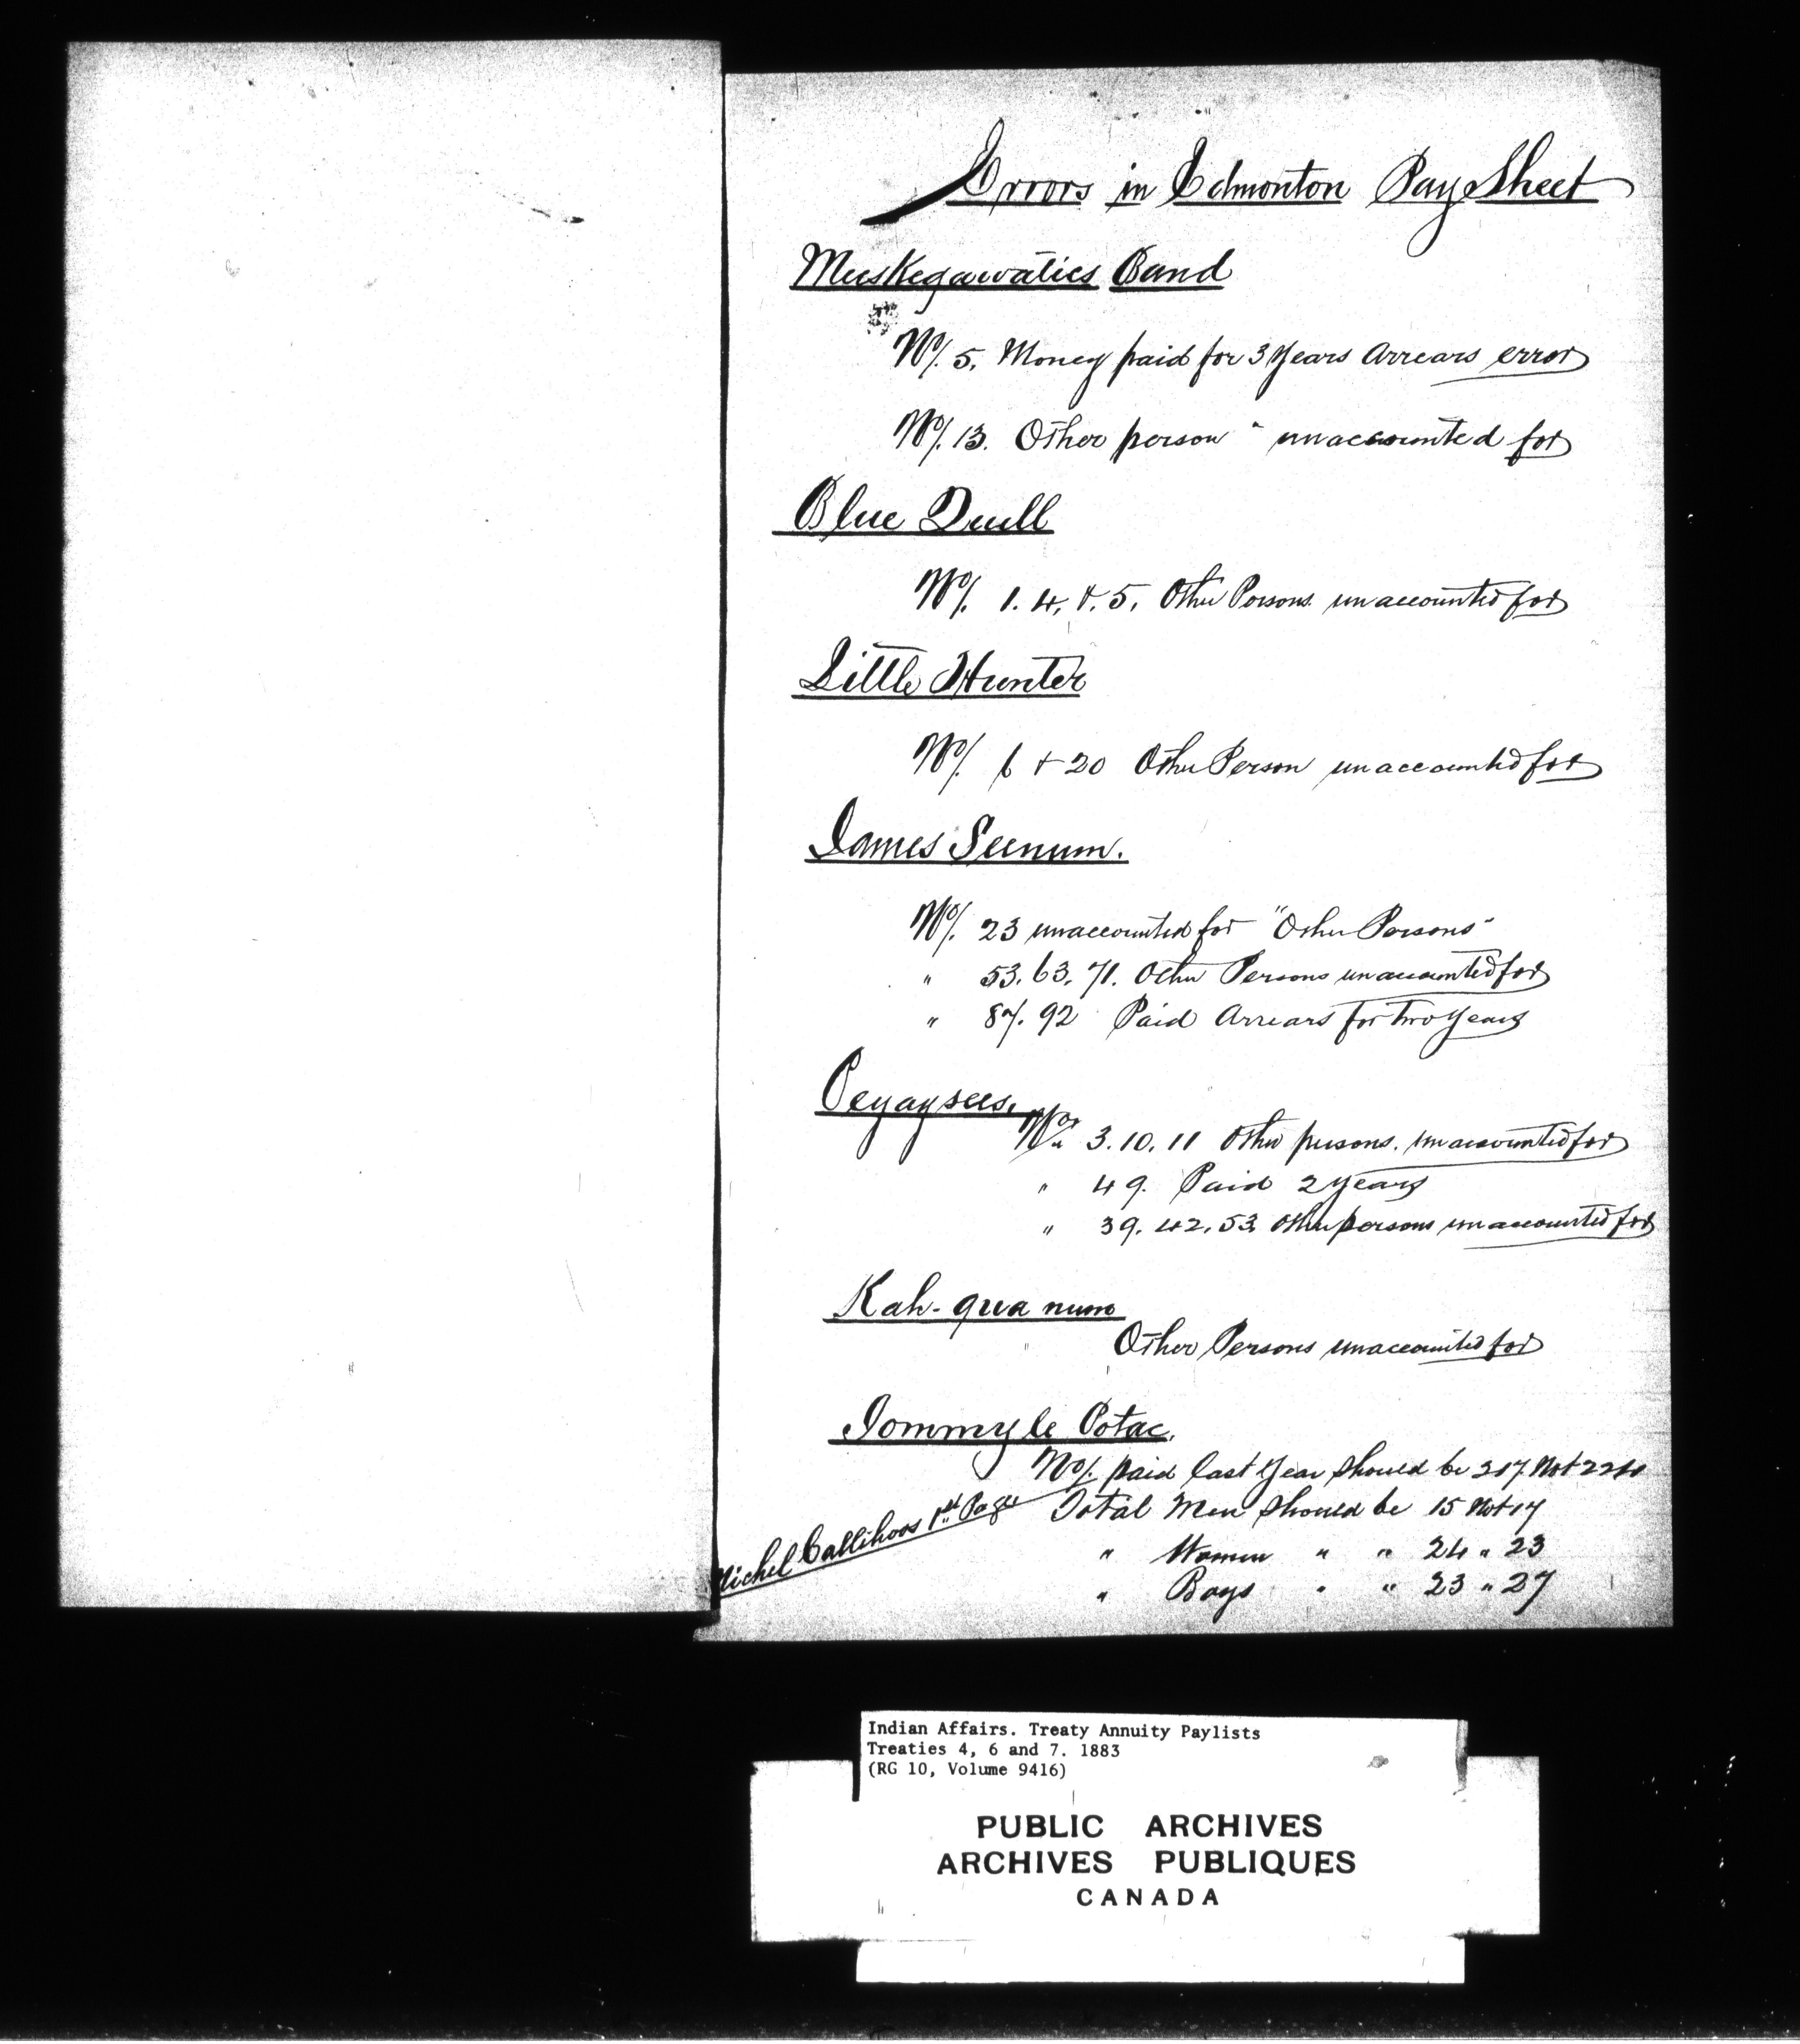 Errors in Edmonton Pay Sheet
Muskegawatics Band
No/. 5. Money paid for 3 Years Arrears error
No/. 13. Other person " unaccounted for
Blue Quill
No/. 1. 4. & 5. Other Persons unaccounted for
Little Hunter
No/. 6 & 20 Other Person unaccounted for
James Seenum.
No/. 23 unaccounted for "Other Persons"
" 53. 63. 71. Other Persons unaccounted for
" 87. 92 Paid Arrears for Two Years
Peyaysees.
Nos 3. 10. 11 Other persons. unaccounted for
" 49. Paid 2 years
" 39. 42. 53 Other persons unaccounted for
Kah-qua num
Other Persons unaccounted for
Tommy le Potac.
No/. paid last Year should be 217 Not
Michel Callihoos 1st Page
Total Men should be 15 Not 17
" Women " " 24 " 23
" Boys " " 23 " 27
Indian Affairs. Treaty Annuity Paylists
Treaties 4, 6 and 7. 1883
(RG 10, Volume 9416)
PUBLIC ARCHIVES
ARCHIVES PUBLIQUES
CANADA